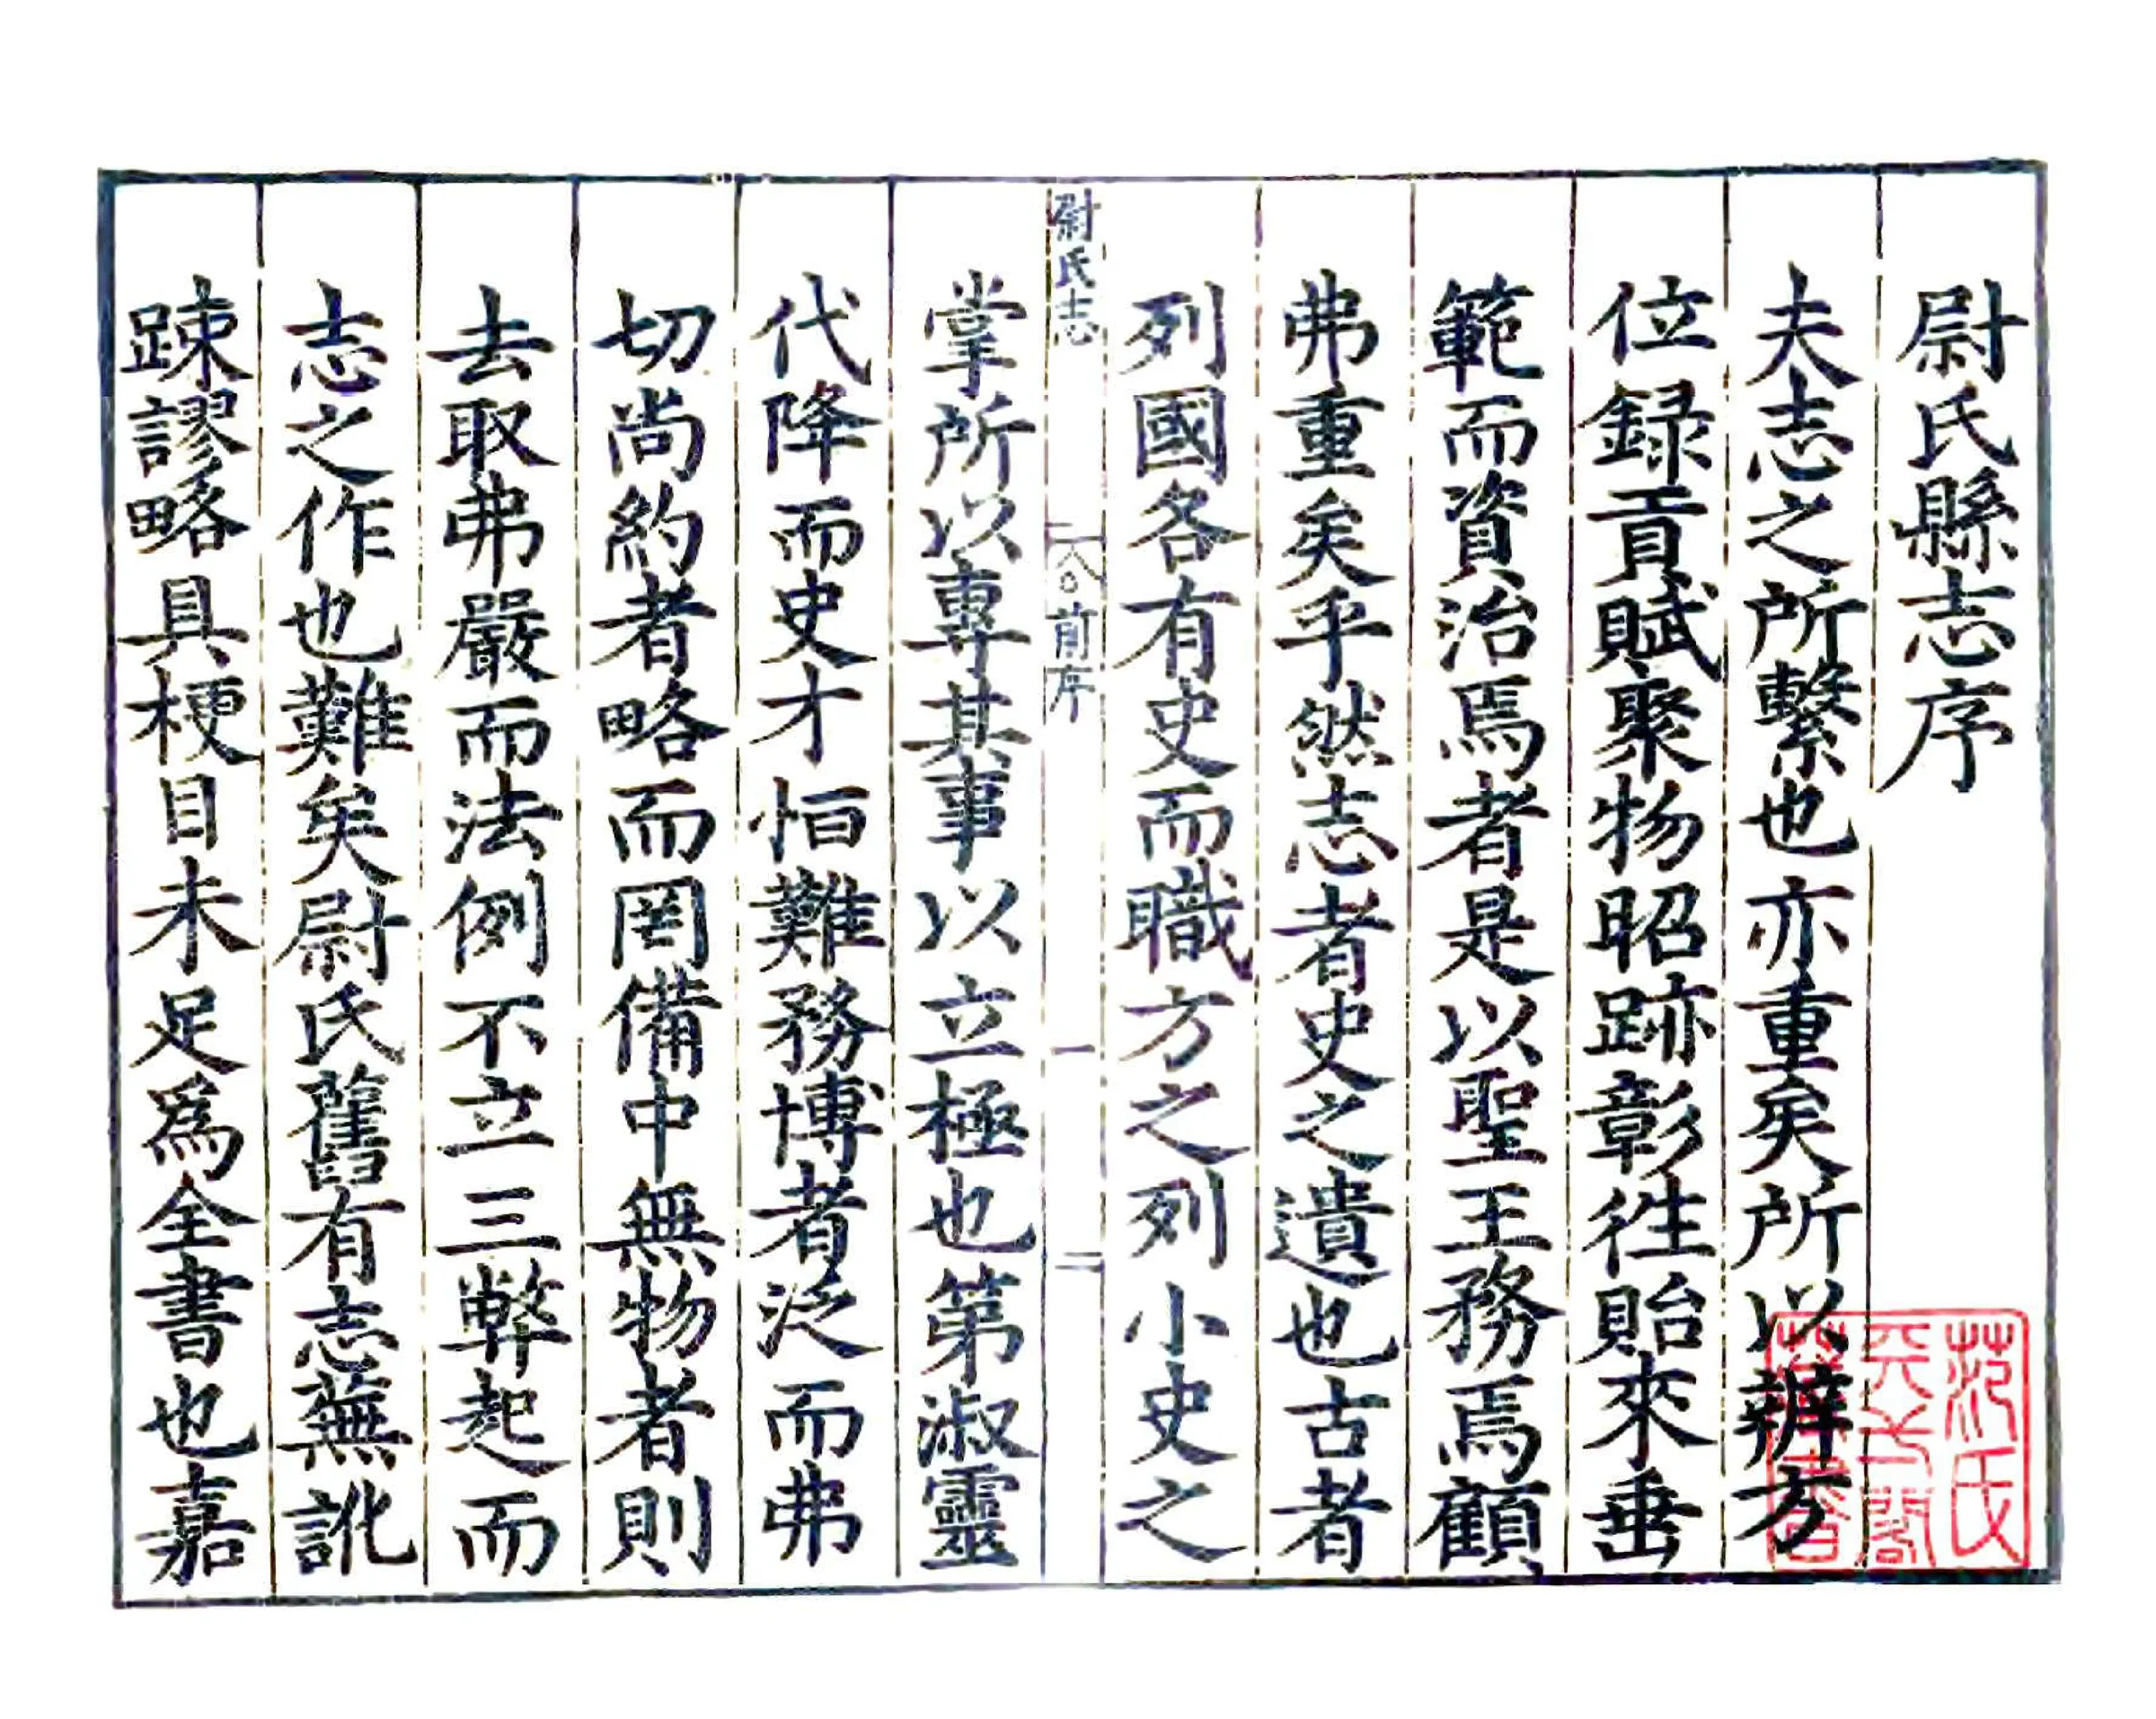 尉氏縣志序
夫志之所繫也亦重矣所以辨方
位録貢賦聚物昭跡彰徃貽來垂
範而資治焉者是以聖王務焉顧
弗重矣乎然志者史之遺也古者
列國各有史而職方之列小史之
尉氏志
前序
一
二
掌所以專其事以立極也第淑靈
代降而史才恒難務博者泛而弗
切尚約者略而罔備中無物者則
去取弗嚴而法例不立三弊起而
志之作也難矣尉氏舊有志蕪訛
踈謬略具梗目未足爲全書也嘉
范氏
天一閣
藏書